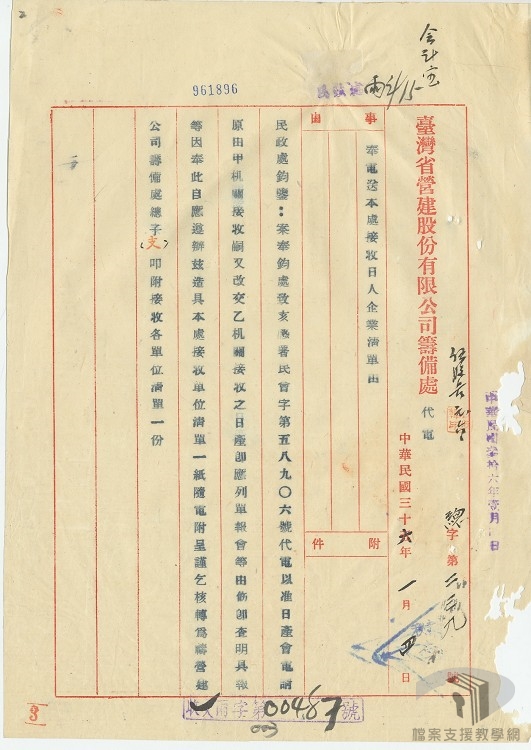 會計室
臺灣省營建股份有限公司籌備處
代電
中華民國三十六年一月四日
總字第
號
事由
奉電送本處接收日人企業清單由
附件
民政處鈞鑒：案奉鈞處致亥
署民會字第五八九〇六號代電以准日產會電請
原由甲机關接收嗣又改交乙机關接收之日產卽應列單報會等由飭卽查明具報
等因奉此自應遵辦茲造具本處接收單位清單一紙隨電附呈謹乞核轉為禱營建
公司籌備處總子(支)叩附接收各單位清單一份
961896
2
字第00487號
003
檔案支援教學網